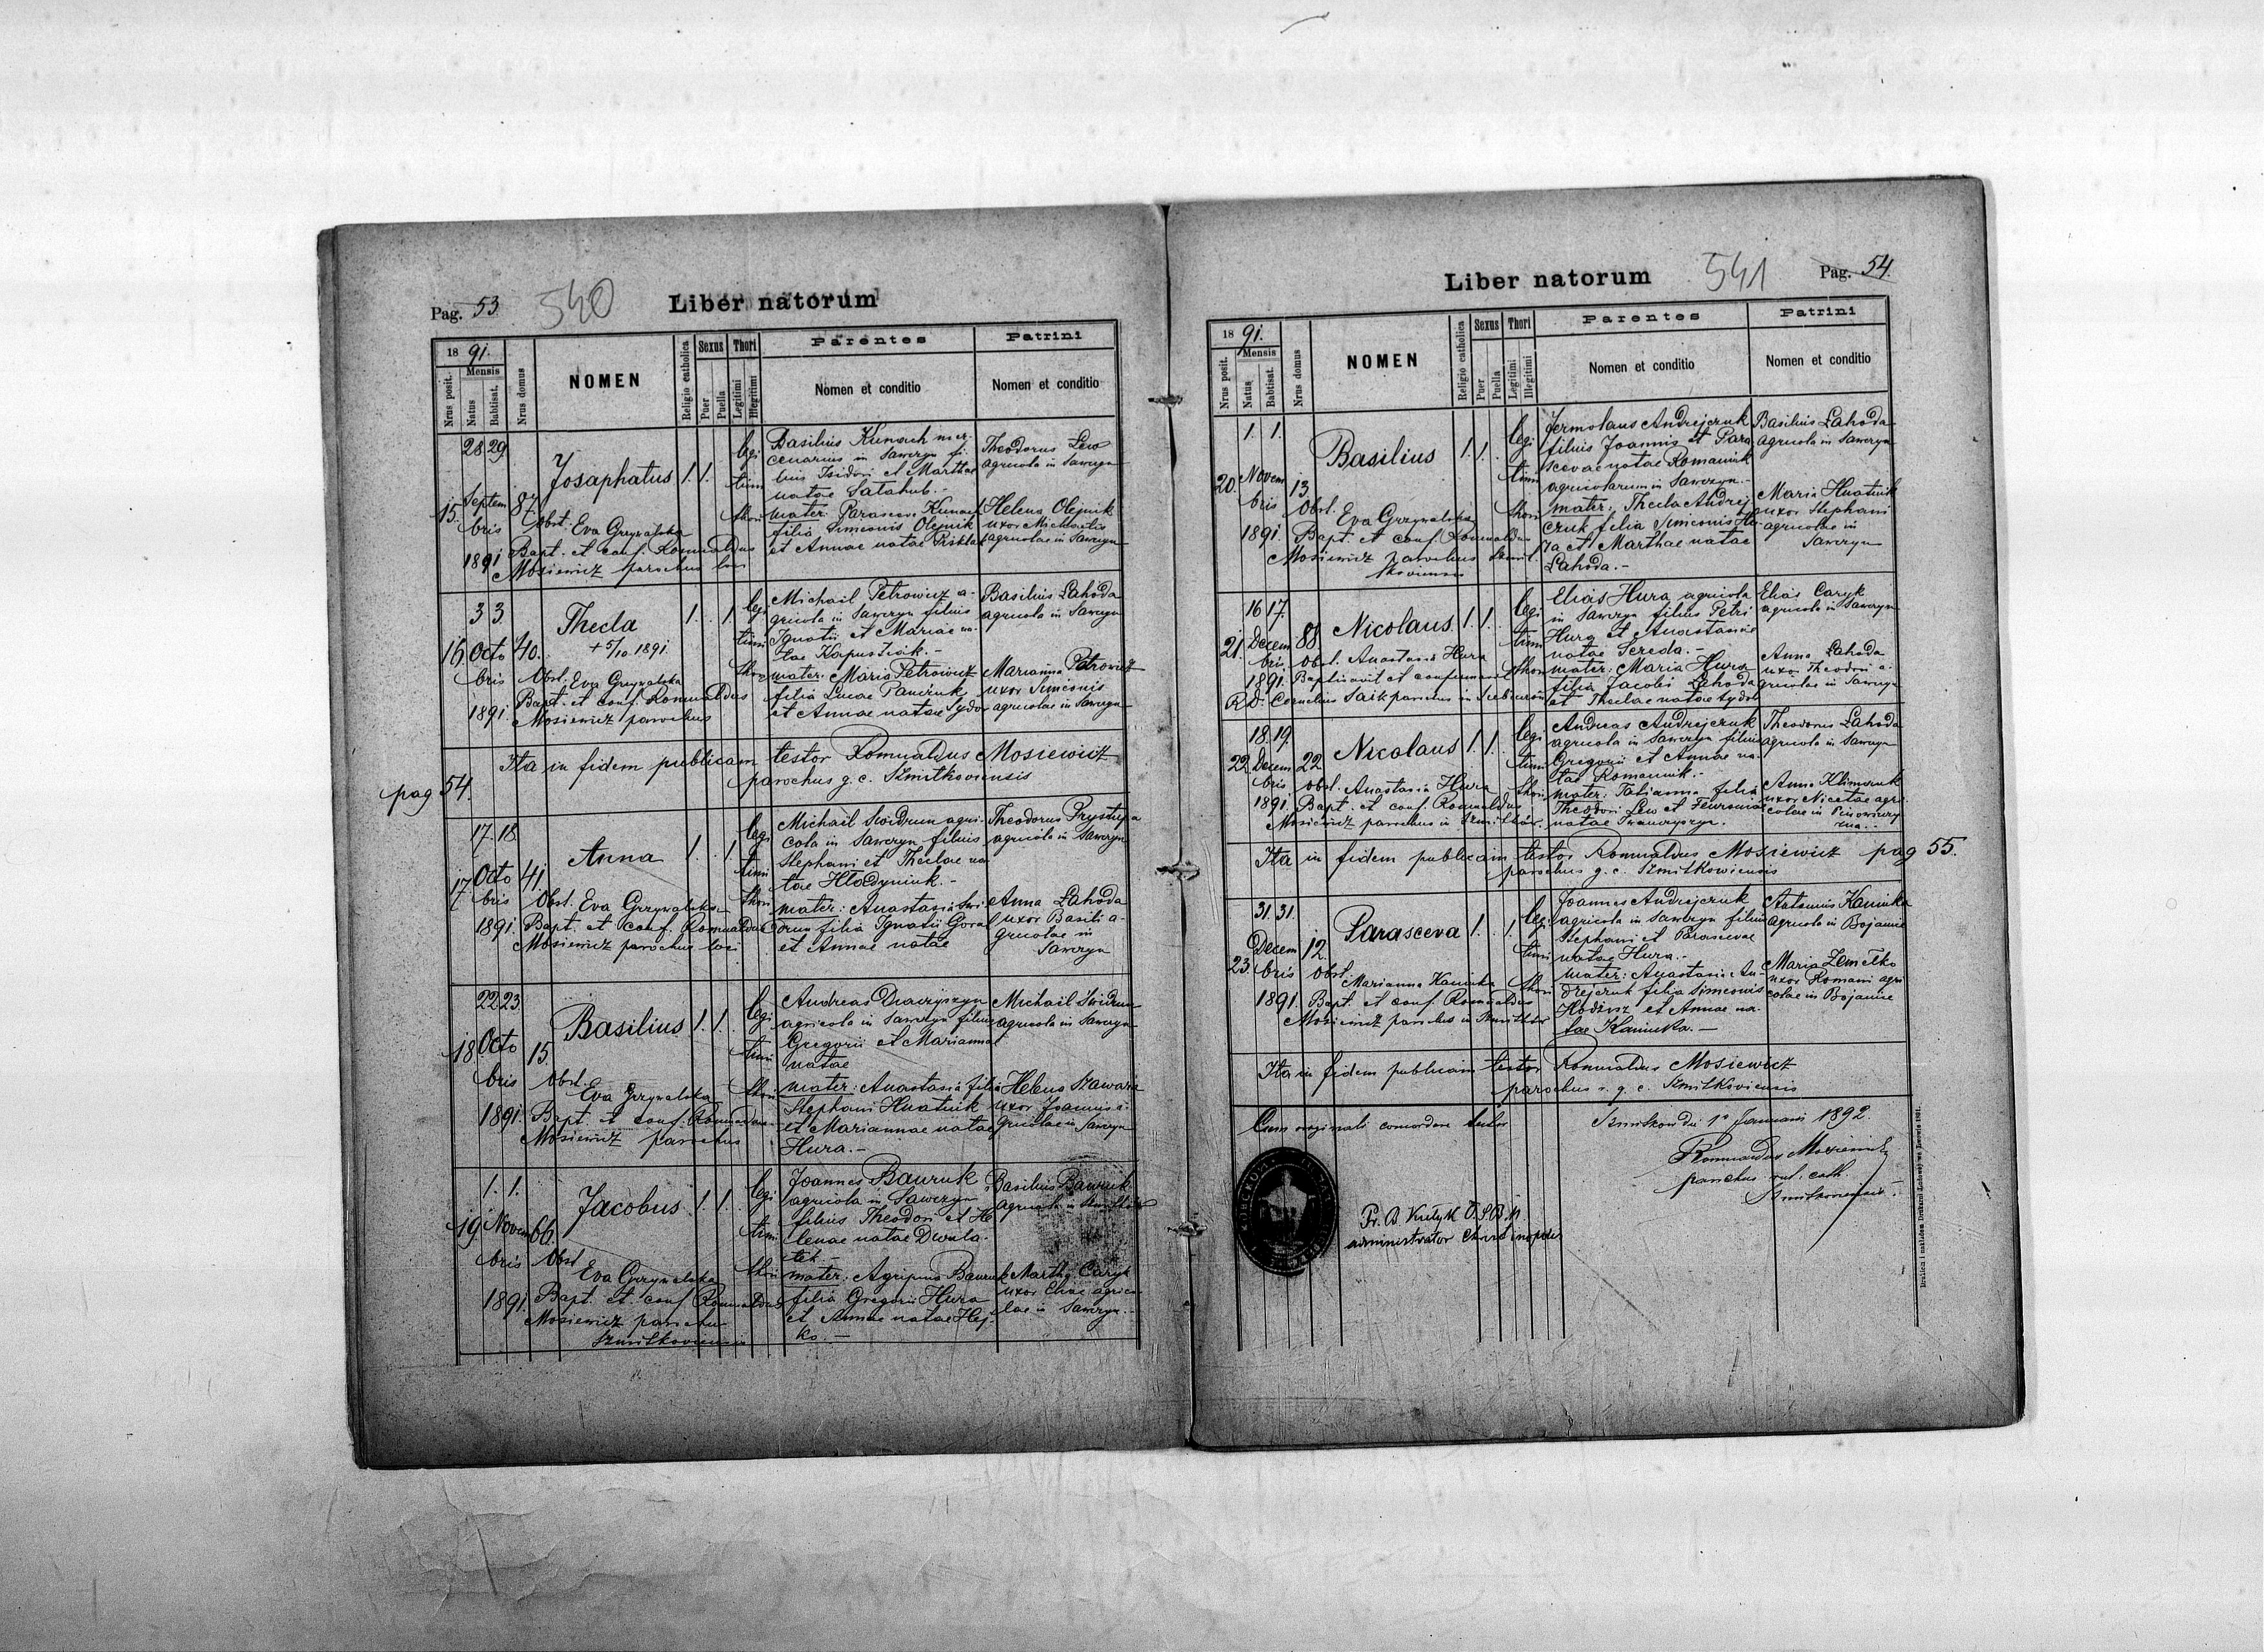 Pag. 53
540
Liber natorum
1891.
Nrus posit.
Mensis
Natus
Babtisat.
Nrus domus
NOMEN
Religio catholica
Sexus
Puer
Puella
Thori
Legitimi
Illegitimi
Parentes
Nomen et conditio
Patrini
Nomen et conditio
15.
28 29
Septem
bris
1891
87.
Josaphatus
1. 1.
legi
timi
thori
Obst. Eva Grzywalska
Bapt. et conf. Romualdus
Mosiewicz parochus loci
Basilius Kunach mer-
cenarius in Sawczyn fi-
lius Isidori et Marthae
natae Satahub.-
mater: Parasceva Kunach
filia Simeonis Olejnik
et Annae natae Prisklak
Theodorus Lew
agricola in Sawczyn
Helena Olejnik
uxor Michaelis
agricolae in Sawczyn
16
3 3.
Octo
bris
1891.
40.
Thecla
+ 5/10 1891.
1. 1
legi
timi
thori
Obst. Eva Grzywalska
Bapt. et conf. Romualdus
Mosiewicz parochus
Michail Petrowicz a-
gricola in Sawczyn filius
Ignatii et Mariae na-
tae Kapustiak.-
mater: Maria Petrowicz
filia Lucae Panczuk
et Annae natae Sydor
Basilius Lahoda
agricola in Sawczyn
Marianna Petrowicz
uxor Simeonis
agricolae in Sawczyn
Ita in fidem publicam testor Romualdus Mosiewicz
parochus g. c. Szmitkoviensis
pag 54.
17
17. 18.
Octo
bris
1891.
41.
Anna
1. 1
legi
timi
thori
Obst. Eva Grzywalska
Bapt. et conf. Romualdus
Mosiewicz parochus loci
Michail Swidrun agri-
cola in Sawczyn filius
Stephani et Theclae na-
tae Hladyniuk.-
mater: Anastasia Swi
drun filia Ignatii Goral
et Annae natae
Theodorus Prystupa
agricola in Sawczyn
Anna Lahoda
uxor Basili a-
gricolae in
Sawczyn
18
22 23
Octo
bris
1891.
15
Basilius
1. 1.
legi
timi
thori
Obst.
Eva Grzywalska
Bapt. et conf. Romualdus
Mosiewicz parochus
Andreas Draczyszyn
agricola in Sawczyn filius
Gregorii et Mariannae
natae
mater: Anastasia filia
Stephani Hnatiuk
et Mariannae natae
Hura.-
Michail Swidrun
agricola in Sawczyn
Helena Szawara
uxor Joannis a-
gricolae in Sawczyn
19
1. 1.
Novem
bris
1891.
66.
Jacobus
1. 1.
legi
timi
thori
Obst
Eva Grzywalska
Bapt. et conf. Romualdus
Mosiewicz parochus
Szmitkoviensis
Joannes Bauruk
agricola in Sawczyn
filius Theodori et He
lenae natae Dwula-
tek-
mater: Agripina Bauruk
filia Gregorii Hura
et Annae natae Hej-
ko.-
Basilius Bauruk
agricola in Szmitków
Martha Caryk
uxor Eliae agrico-
lae in Sawczyn.-
Liber natorum
541
Pag. 54.
1891.
Nrus posit.
Mensis
Natus
Babtisat.
Nrus domus
NOMEN
Religio catholica
Sexus
Puer
Puella
Thori
Legitimi
Illegitimi
Parentes
Nomen et conditio
Patrini
Nomen et conditio
20.
1. 1.
Novem
bris
1891.
13.
Basilius
1. 1.
legi
timi
thori
Obst. Eva Grzywalska
Bapt. et conf. Romualdus
Mosiewicz parochus Szmit-
koviensis
Jermolaus Andrejczuk
filius Joannis et Para
scevae natae Romaniuk
agricolarum in Sawczyn.-
mater: Thecla Andrej
czuk filia Simeonis
et Marthae natae
Lahoda.-
Basilius Lahoda
agricola in Sawczyn
Maria Hnatiuk
uxor Stephani
agricolae in
Sawczyn
21.
16 17.
Decem
bris.
1891.
88
Nicolaus
1. 1.
legi
timi
thori
Obst. Anastasia Hura
Baptisavit et confirmavit
R.D. Cornelius Saik parochus in
Elias Hura agricola
in Sawczyn filius Petri
Hura et Anastasiae
natae Sereda.-
mater: Maria Hura
filia Jacobi Lahoda
et Theclae natae Sydor
Elias Caryk
agricola in Sawczyn
Anna Lahoda
uxor Theodori a-
gricolae in Sawczyn
22
18. 19.
Decem
bris
1891.
22
Nicolaus
1. 1.
legi
timi
thori
Obst. Anastasia Hura
Bapt. et conf. Romualdus
Mosiewicz parochus in Szmitków.
Andreas Andrejczuk
agricola in Sawczyn filius
Gregorii et Annae na-
tae Romaniuk.-
mater: Tatianna filia
Theodori Lew et Fewroniae
natae
Theodorus Lahoda
agricola in Sawczyn
Anna Klimczuk
uxor Nicetae agri-
colae in
Ita in fidem publicam testor Romualdus Mosiewicz pag 55.
parochus g. c. Szmitkowiensis
23.
31. 31.
Decem
bris
1891.
12.
Parasceva
1. 1.
legi
timi
thori
Obst.
Marianna Kaminka
Bapt. et conf. Romualdus
Mosiewicz parochus in Szmitków
Joannes Andrejczuk
agricola in Sawczyn filius
Stephani et Parascevae
natae Hura.-
mater: Anastasia An-
drejczuk filia Simeonis
et Annae na-
tae Kaminka.-
Artemius Kaminka
agricola in Bojanie
Maria Zemelko
uxor Romani agri
colae in Bojanie
Ita in fidem publicam testor Romualdus Mosiewicz
parochus g. c. Szmitkoviensis
Cum originali concordare testor
Szmitków die 1a Januarii 1892.
Romualdus Mosiewicz
parochus rut. cath.
Szmitkoviensis.
Pr. B. Kutyk O.S.B.M.
administrator Christinopoli